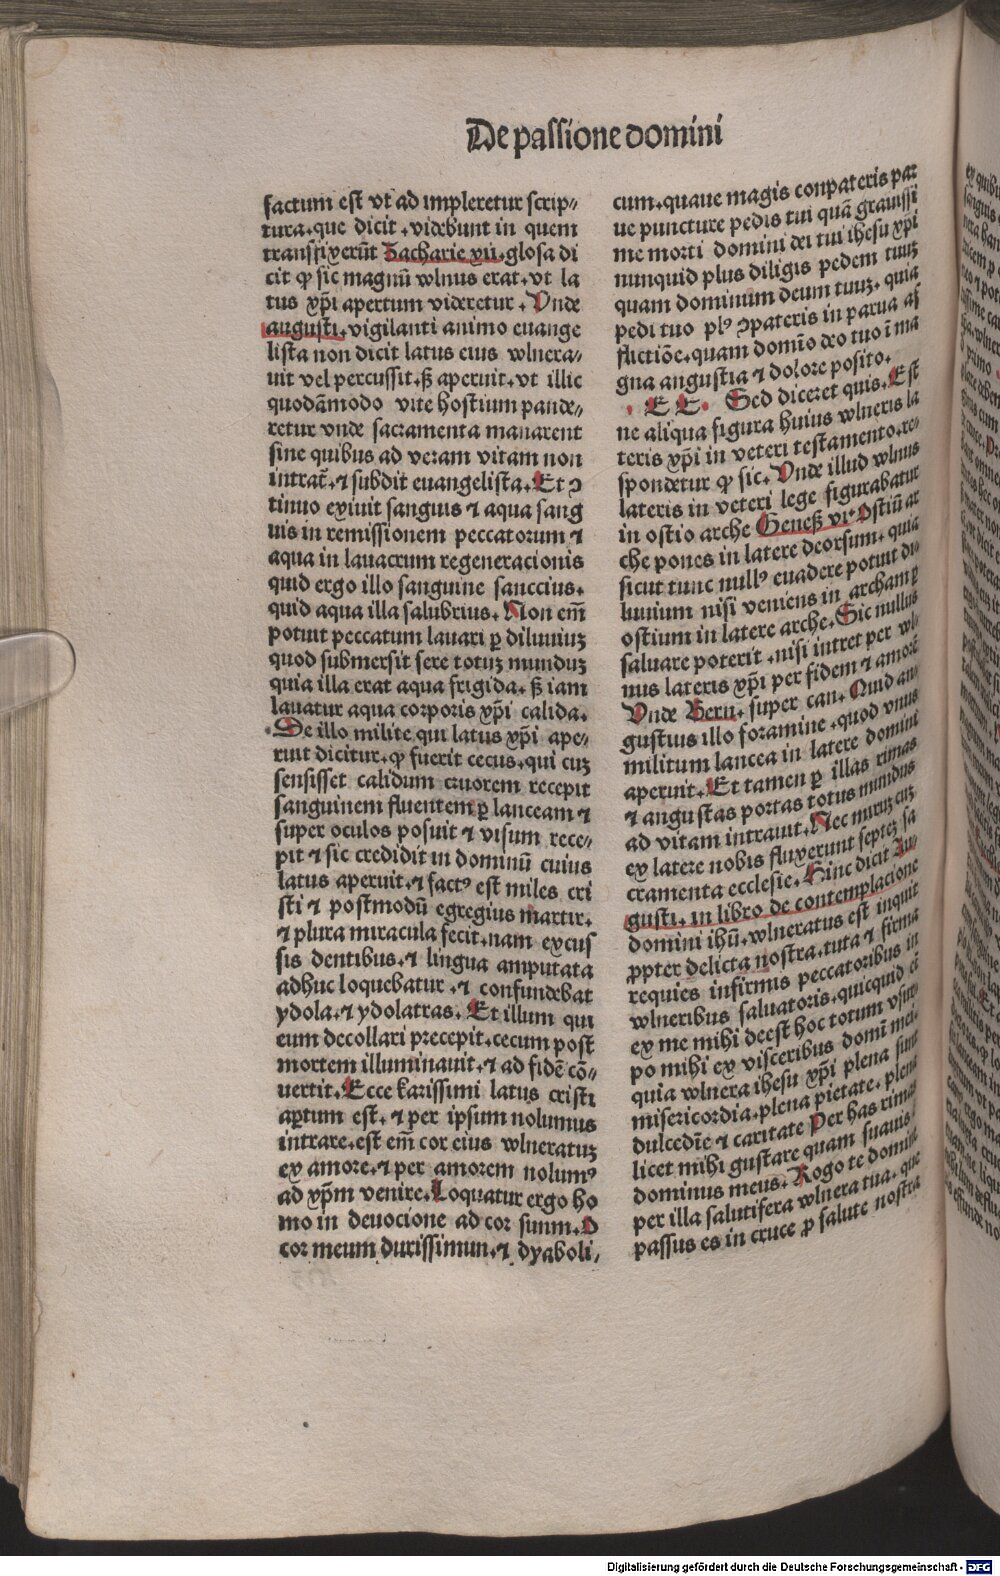 De passione domini
factum est vt ad impleretur scrip⸗
tura.que dicit .videbunt in quem
transfixerūt Zacharie xii.glosa di
cit ꝙ sic magnū wlnus erat.vt la
tus xp̄i apertum videretur . Unde
augusti.vigilanti animo euange
lista non dicit latus eius wlnera⸗
uit vel percussit.ꝭ aperuit.vt illic
quodāmodo vite hostium pande⸗
retur vnde sacramenta manarent
sine quibus ad veram vitam non
intrat̄.⁊ subdit euangelista.Et ↄ
tinuo exiuit sanguis ⁊ aqua sang
uis in remissionem peccatorum ⁊
aqua in lauacrum regeneracionis
quid ergo illo sanguine sanccius.
quid aqua illa salubrius. Non em̄
potuit peccatum lauari ꝑ diluuiuꝫ
quod submersit fere totuꝫ munduꝫ
quia illa erat aqua frigida.ꝭ iam
lauatur aqua corporis xp̄i calida.
De illo milite qui latus xp̄i ape⸗
ruit dicitur.ꝙ fuerit cecus.qui cuꝫ
sensisset calidum cruorem recepit
sanguinem fluentem ꝑ lanceam ⁊
super oculos posuit ⁊ visum rece⸗
pit ⁊ sic credidit in dominū cuius
latus aperuit.⁊ factꝰ est miles cri
sti ⁊ postmodū egregius martir.
⁊ plura miracula fecit.nam excus
sis dentibus.⁊ lingua amputata
adhuc loquebatur .⁊ confundebat
ydola.⁊ ydolatras. Et illum qui
eum decollari precepit.cecum post
mortem illuminauit.⁊ ad fidē cō⸗
uertit.Ecce karissimi latus cristi
aꝑtum est. ⁊ per ipsum nolumus
intrare.est em̄ cor eius wlneratuꝫ
ex amore.⁊ per amorem nolumꝰ
ad xp̄m venire.Loquatur ergo ho
mo in deuocione ad cor suum.O
cor meum durissimun.⁊ dyaboli⸗
cum.quaue magis conpateris par
ue puncture pedis tui quā grauissi
me morti domini dei tui ihesu xp̄i
nunquid plus diligis pedem tuuꝫ
quam dominum deum tuuꝫ. quia
pedi tuo plꝰ ↄpateris in parua af
flictiōe.quam domīo deo tuo ī ma
gna angustia ⁊ dolore posito.
. E E. Sed diceret quis.Est
ne aliqua figura huius wlneris la
teris xp̄i in veteri testamento.re⸗
spondetur ꝙ sic. Unde illud wlnus
lateris in veteri lege figurabatur
in ostio arche Geneß vi.Ostiū ar
che pones in latere deorsum. quia
sicut tunc nullꝰ euadere potuit di⸗
luuium nisi veniens in archam ꝑ
ostium in latere arche.Sic nullus
saluare poterit .nisi intret per wl
nus lateris xp̄i per fidem ⁊ amorē
Unde Bern. super can. Quid an⸗
gustius illo foramine .quod vnus
militum lancea in latere domini
aperuit.Et tamen ꝑ illas rimas
⁊ angustas portas totus mundus
ad vitam intrauit.Nec miruꝫ cuꝫ
ex latere nobis fluxerunt septeꝫ sa
cramenta ecclesie.Hinc dicit Au⸗
gusti.in libro de contemplacione
domini ihū.wlneratus est inquit
ꝓpter delicta nostra.tuta ⁊ firma
requies infirmis peccatoribus in
wlneribus saluatoris.quicquid ei
ex me mihi deest hoc totum vsur⸗
po mihi ex visceribus domī mei.
quia wlnera ihesu xp̄i plena sunt
misericordia.plena pietate. plena
dulcedīe ⁊ caritate Per has rimas
licet mihi gustare quam suauis
dominus meus. Rogo te domine
per illa salutifera wlnera tua. que
passus es in cruce ꝓ salute nostra
Digitalisierung gefördert durch die Deutsche Forschungsgemeinschaft - DFG